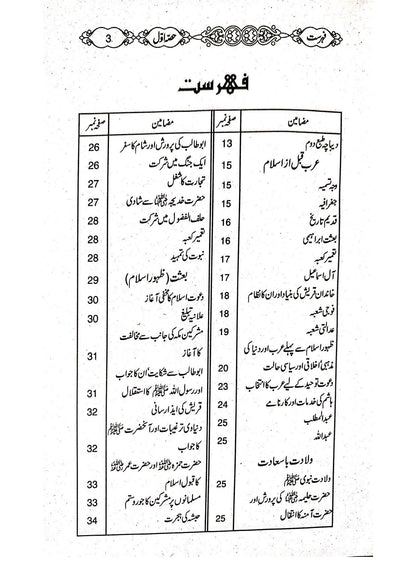 فہرست
حصہ اوّل
3
فہرست
مضامین صفحہ نمبر
دیباچہ طبع دوم 13
عرب قبل از اسلام
وجہ تسمیہ 15
جغرافیہ 15
قدیم تاریخ 16
بعثت ابراہیمی 16
تعمیر کعبہ 17
آل اسماعیل 17
خاندان قریش کی بنیاد اور ان کا نظام 18
فوجی شعبہ 18
عدالتی شعبہ 19
ظہور اسلام سے پہلے عرب اور دنیا کی
مذہبی اخلاقی اور سیاسی حالت 20
دعوت توحید کے لیے عرب کا انتخاب 23
ہاشم کی خدمات اور کارنامے 24
عبدالمطلب 25
عبداللہ 25
ولادت باسعادت
ولادت نبوی ﷺ 25
حضرت حلیمہ کی پرورش اور
حضرت آمنہ کا انتقال 25
مضامین صفحہ نمبر
ابوطالب کی پرورش اور شام کا سفر 26
ایک جنگ میں شرکت 26
تجارت کا شغل 27
حضرت خدیجہ سے شادی 27
حلف الفضول میں شرکت 28
تعمیر کعبہ 28
نبوت کی تمہید 28
بعثت (ظہور اسلام) 29
دعوت اسلام کا مخفی آغاز 30
علانیہ تبلیغ 30
مشرکین مکہ کی جانب سے مخالفت
کا آغاز 31
ابوطالب سے شکایت اُن کا جواب
اور رسول اللہ ﷺ کا استقلال 31
قریش کی ایذا رسانی 32
دنیاوی ترغیبات اور آنحضرت ﷺ
کا جواب 32
حضرت حمزہ اور حضرت عمر
کا قبول اسلام 33
مسلمانوں پر مشرکین کا جور و ستم 33
حبشہ کی ہجرت 34